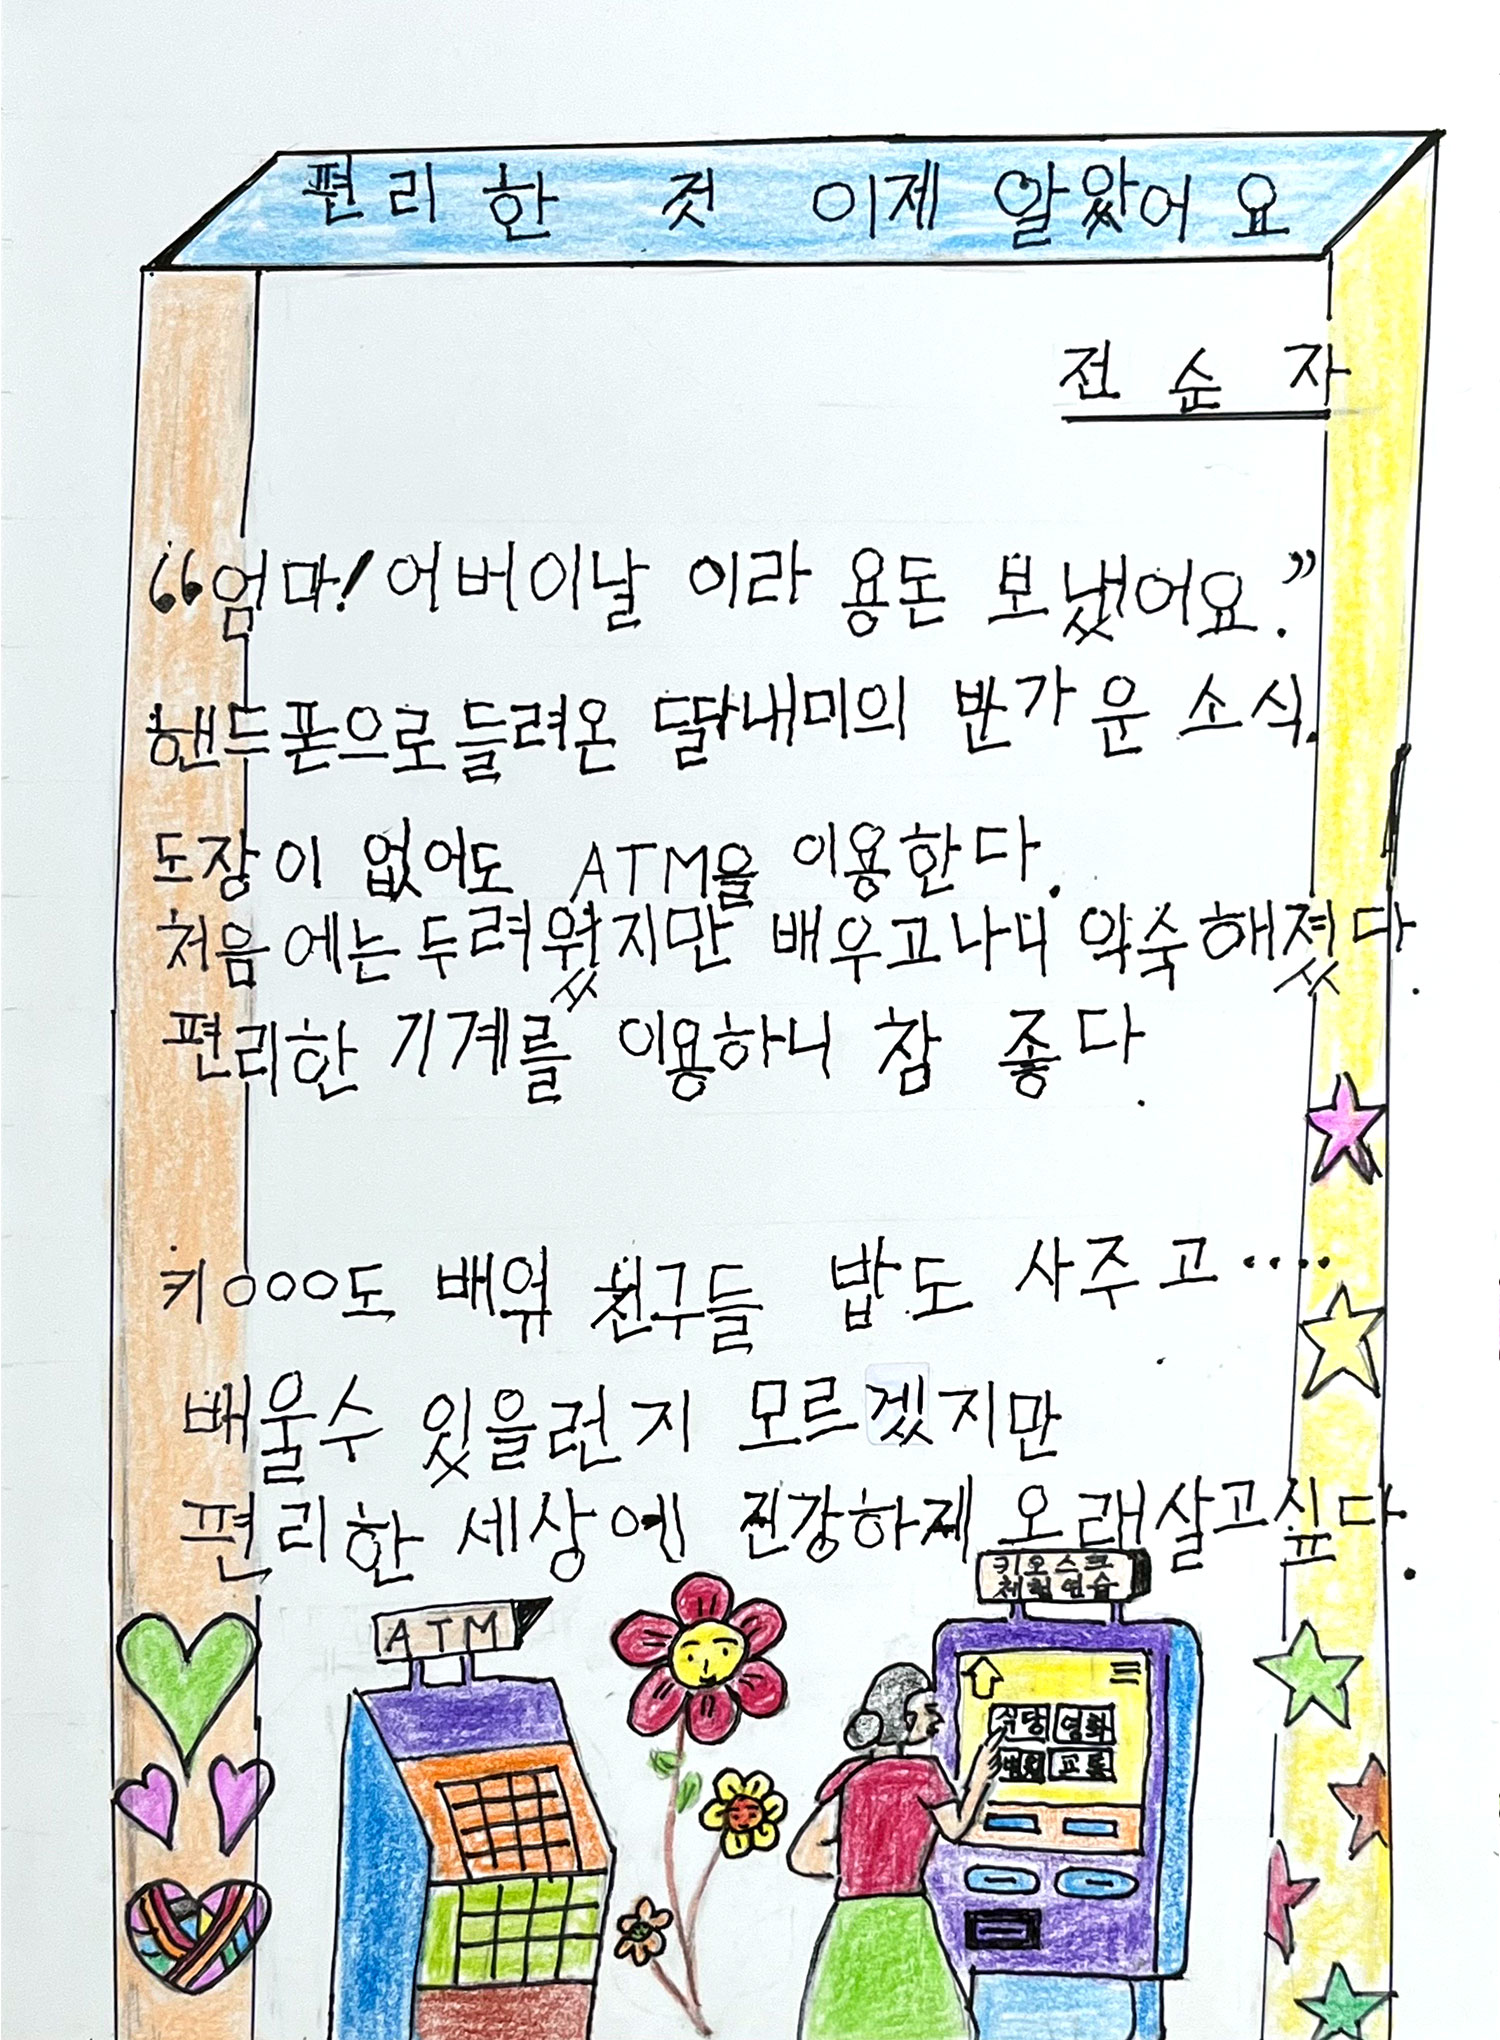 편리한 것 이제 알았어요
전순자
“엄마! 어버이날 이라 용돈 보냈어요.”
핸드폰으로 들려온 딸내미의 반가운 소식.
도장이 없어도 ATM을 이용한다.
처음에는 두려웠지만 배우고나니 익숙해졌다.
편리한 기계를 이용하니 참 좋다.
키○○○도 배워 친구들 밥도 사주고····
배울수 있을런지 모르겠지만
편리한 세상에 건강하게 오래살고싶다.
키오스크
체험연습
ATM
은행 영화
병원 교통